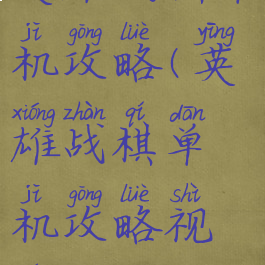 jī gōng lüè yīng
机攻略(英
xióng zhàn qí dān
雄战棋单
jī gōng lüè shì
机攻略视